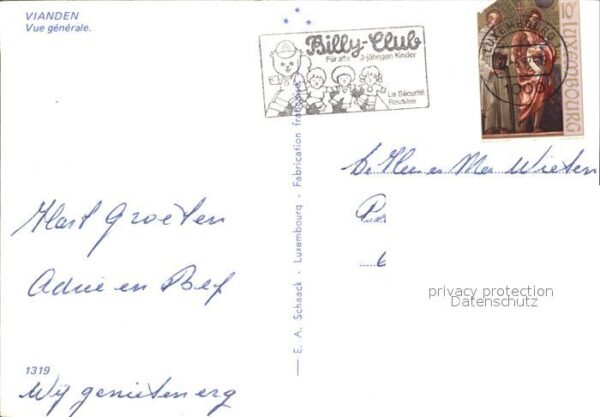 VIANDEN
Vue générale.
Billy-Club
Für alle 3-jährigen Kinder
La Sécurité
Routière
LUXEMBOURG
1000
10F LUXEMBOURG
E. A. Schaack - Luxembourg - Fabrication française
De Heer en Mev Wieten
Hart Groeten
Adrie en Bep
privacy protection
Datenschutz
1319
Wij genieten erg